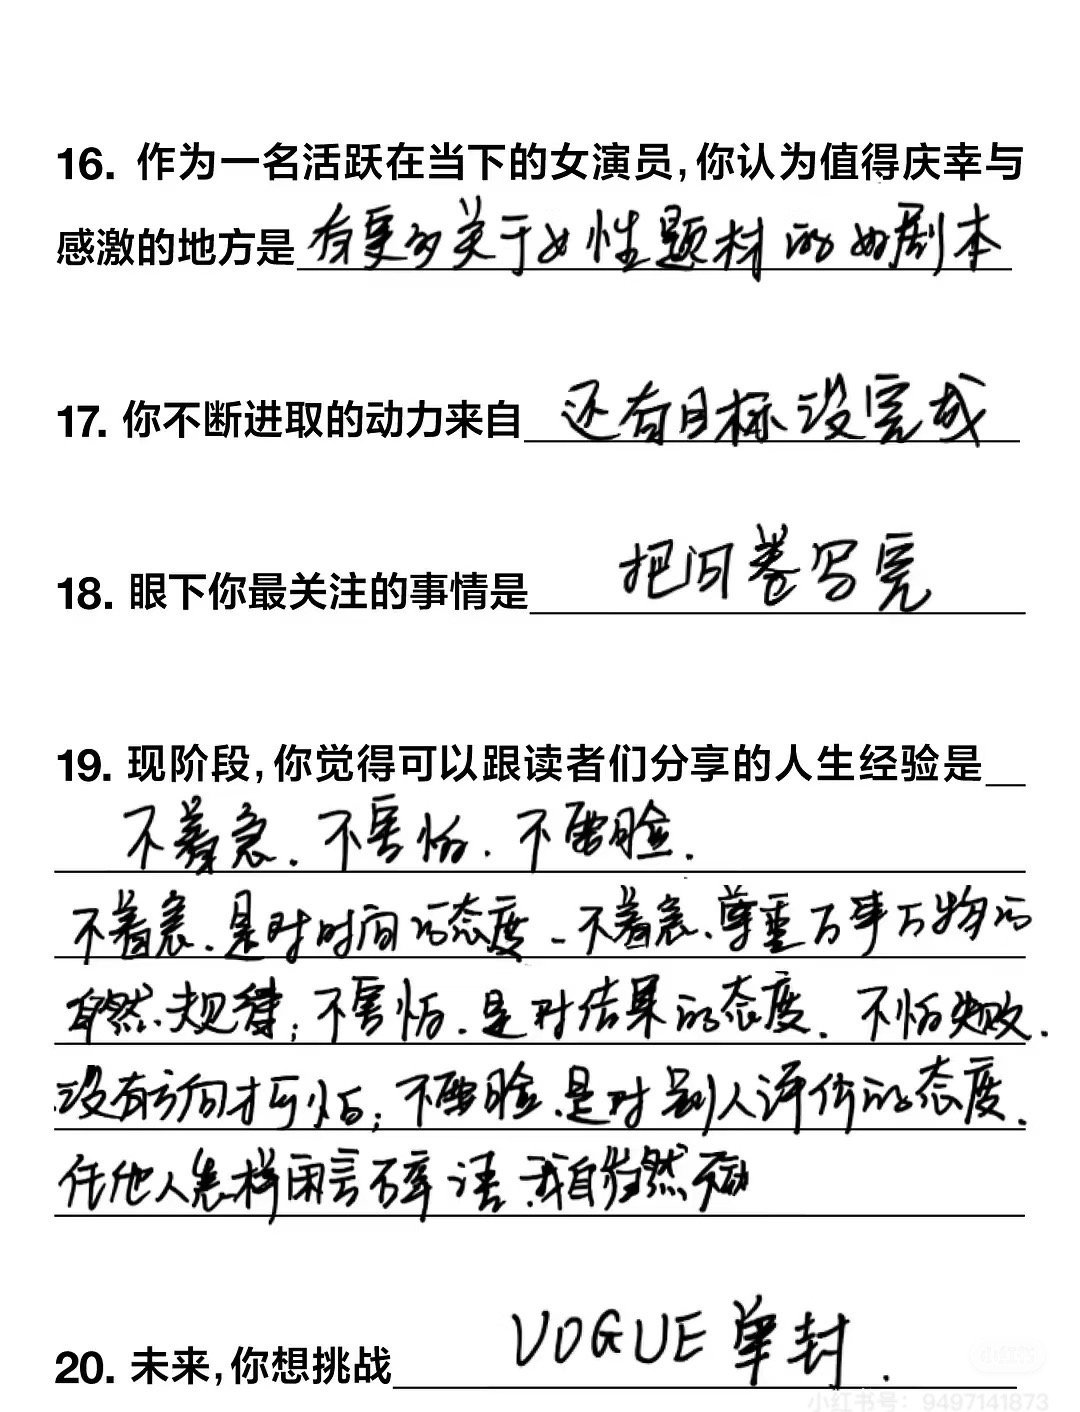 16. 作为一名活跃在当下的女演员,你认为值得庆幸与
感激的地方是 有更多关于女性题材的好剧本
17. 你不断进取的动力来自 还有目标没完成
18. 眼下你最关注的事情是 把问卷写完
19. 现阶段,你觉得可以跟读者们分享的人生经验是
不着急.不害怕.不要脸.
不着急.是对时间的态度-不着急.尊重万事万物的
自然.规律;不害怕.是对结果的态度.不怕失败.
没有方向才可怕;不要脸.是对别人评价的态度.
任他人怎样闲言碎语.我自岿然不动
20. 未来,你想挑战 VOGUE单封.
小红书
小红书号:9497141873